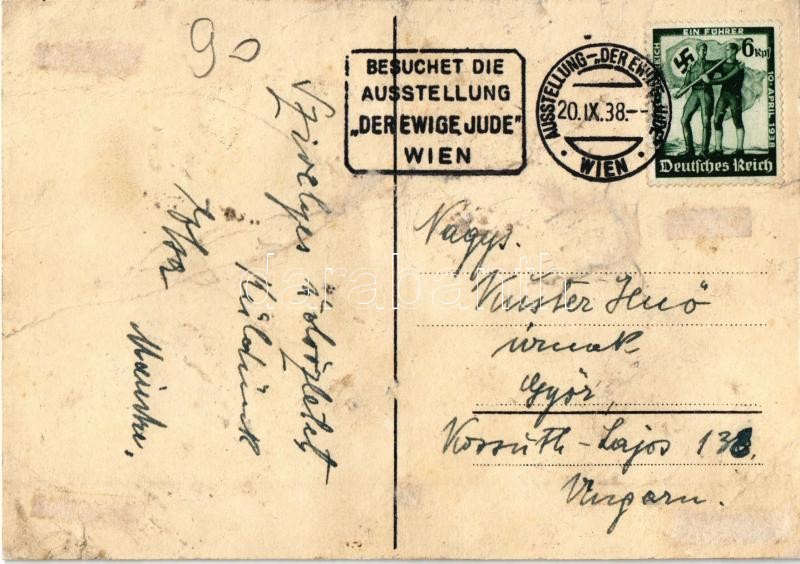 90
BESUCHET DIE
AUSSTELLUNG
„DER EWIGE JUDE"
WIEN
AUSSTELLUNG-„DER EWIGE JUDE"
20.IX.38.--
• WIEN •
EIN FÜHRER
6 Rpf
10. APRIL 1938
Deutsches Reich
Szívélyes üdvözletet
küldünk
Nagys.
Kuster Jenő
úrnak
Győr,
Kossuth-Lajos 138.
Ungarn.
darabanth